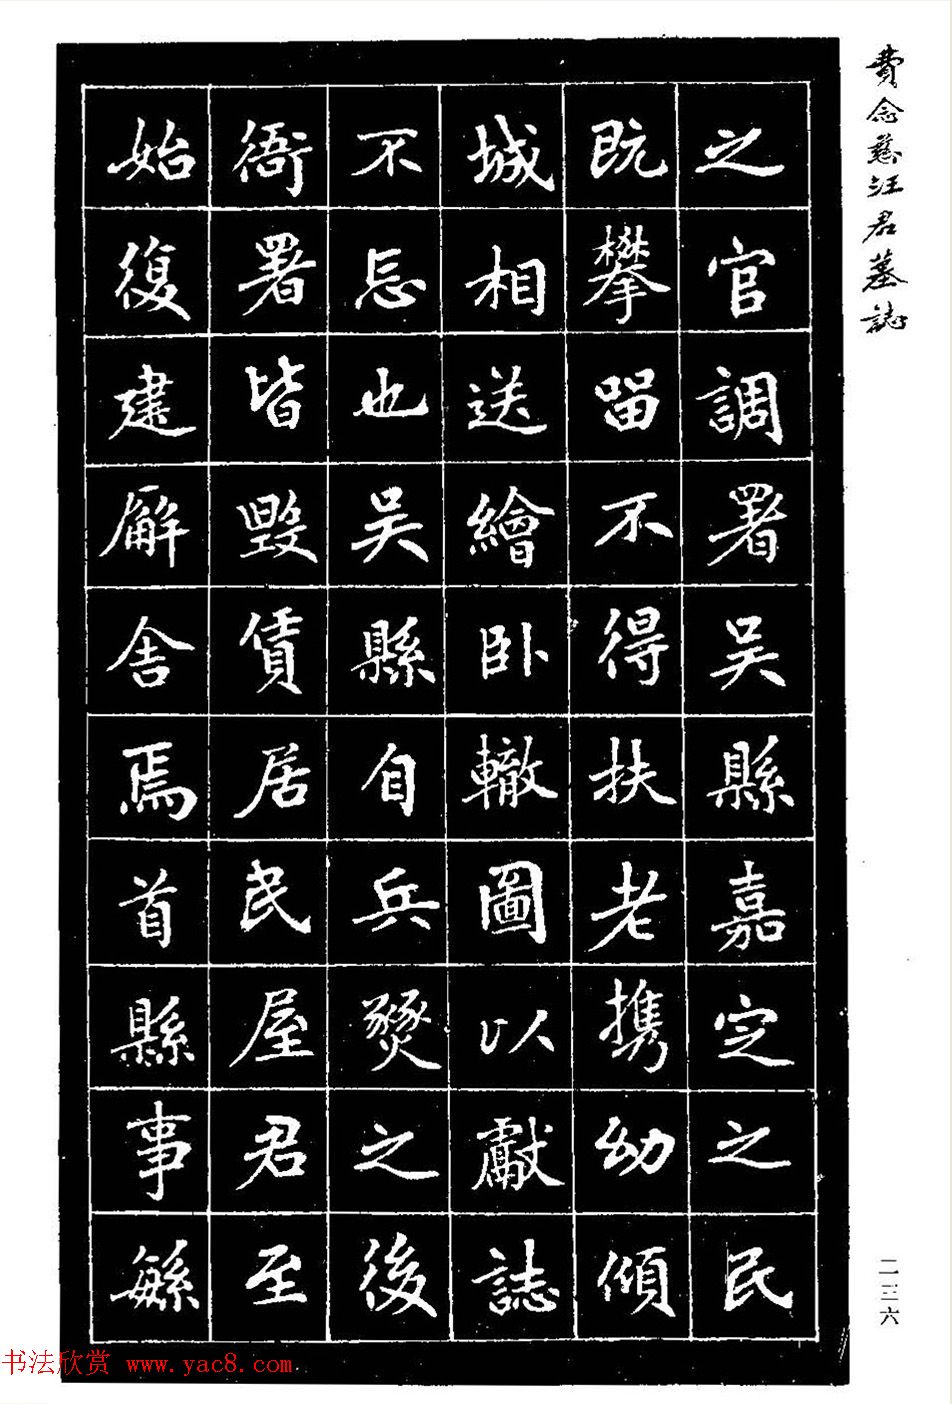 費念慈汪君墓誌
之官調署吴縣嘉定之民
既攀留不得扶老携幼傾
城相送繪卧轍圖以獻誌
不忘也吴縣自兵燹之後
衙署皆毀賃居民屋君至
始復建廨舍焉首縣事繇
二三六
书法欣赏 www.yac8.com